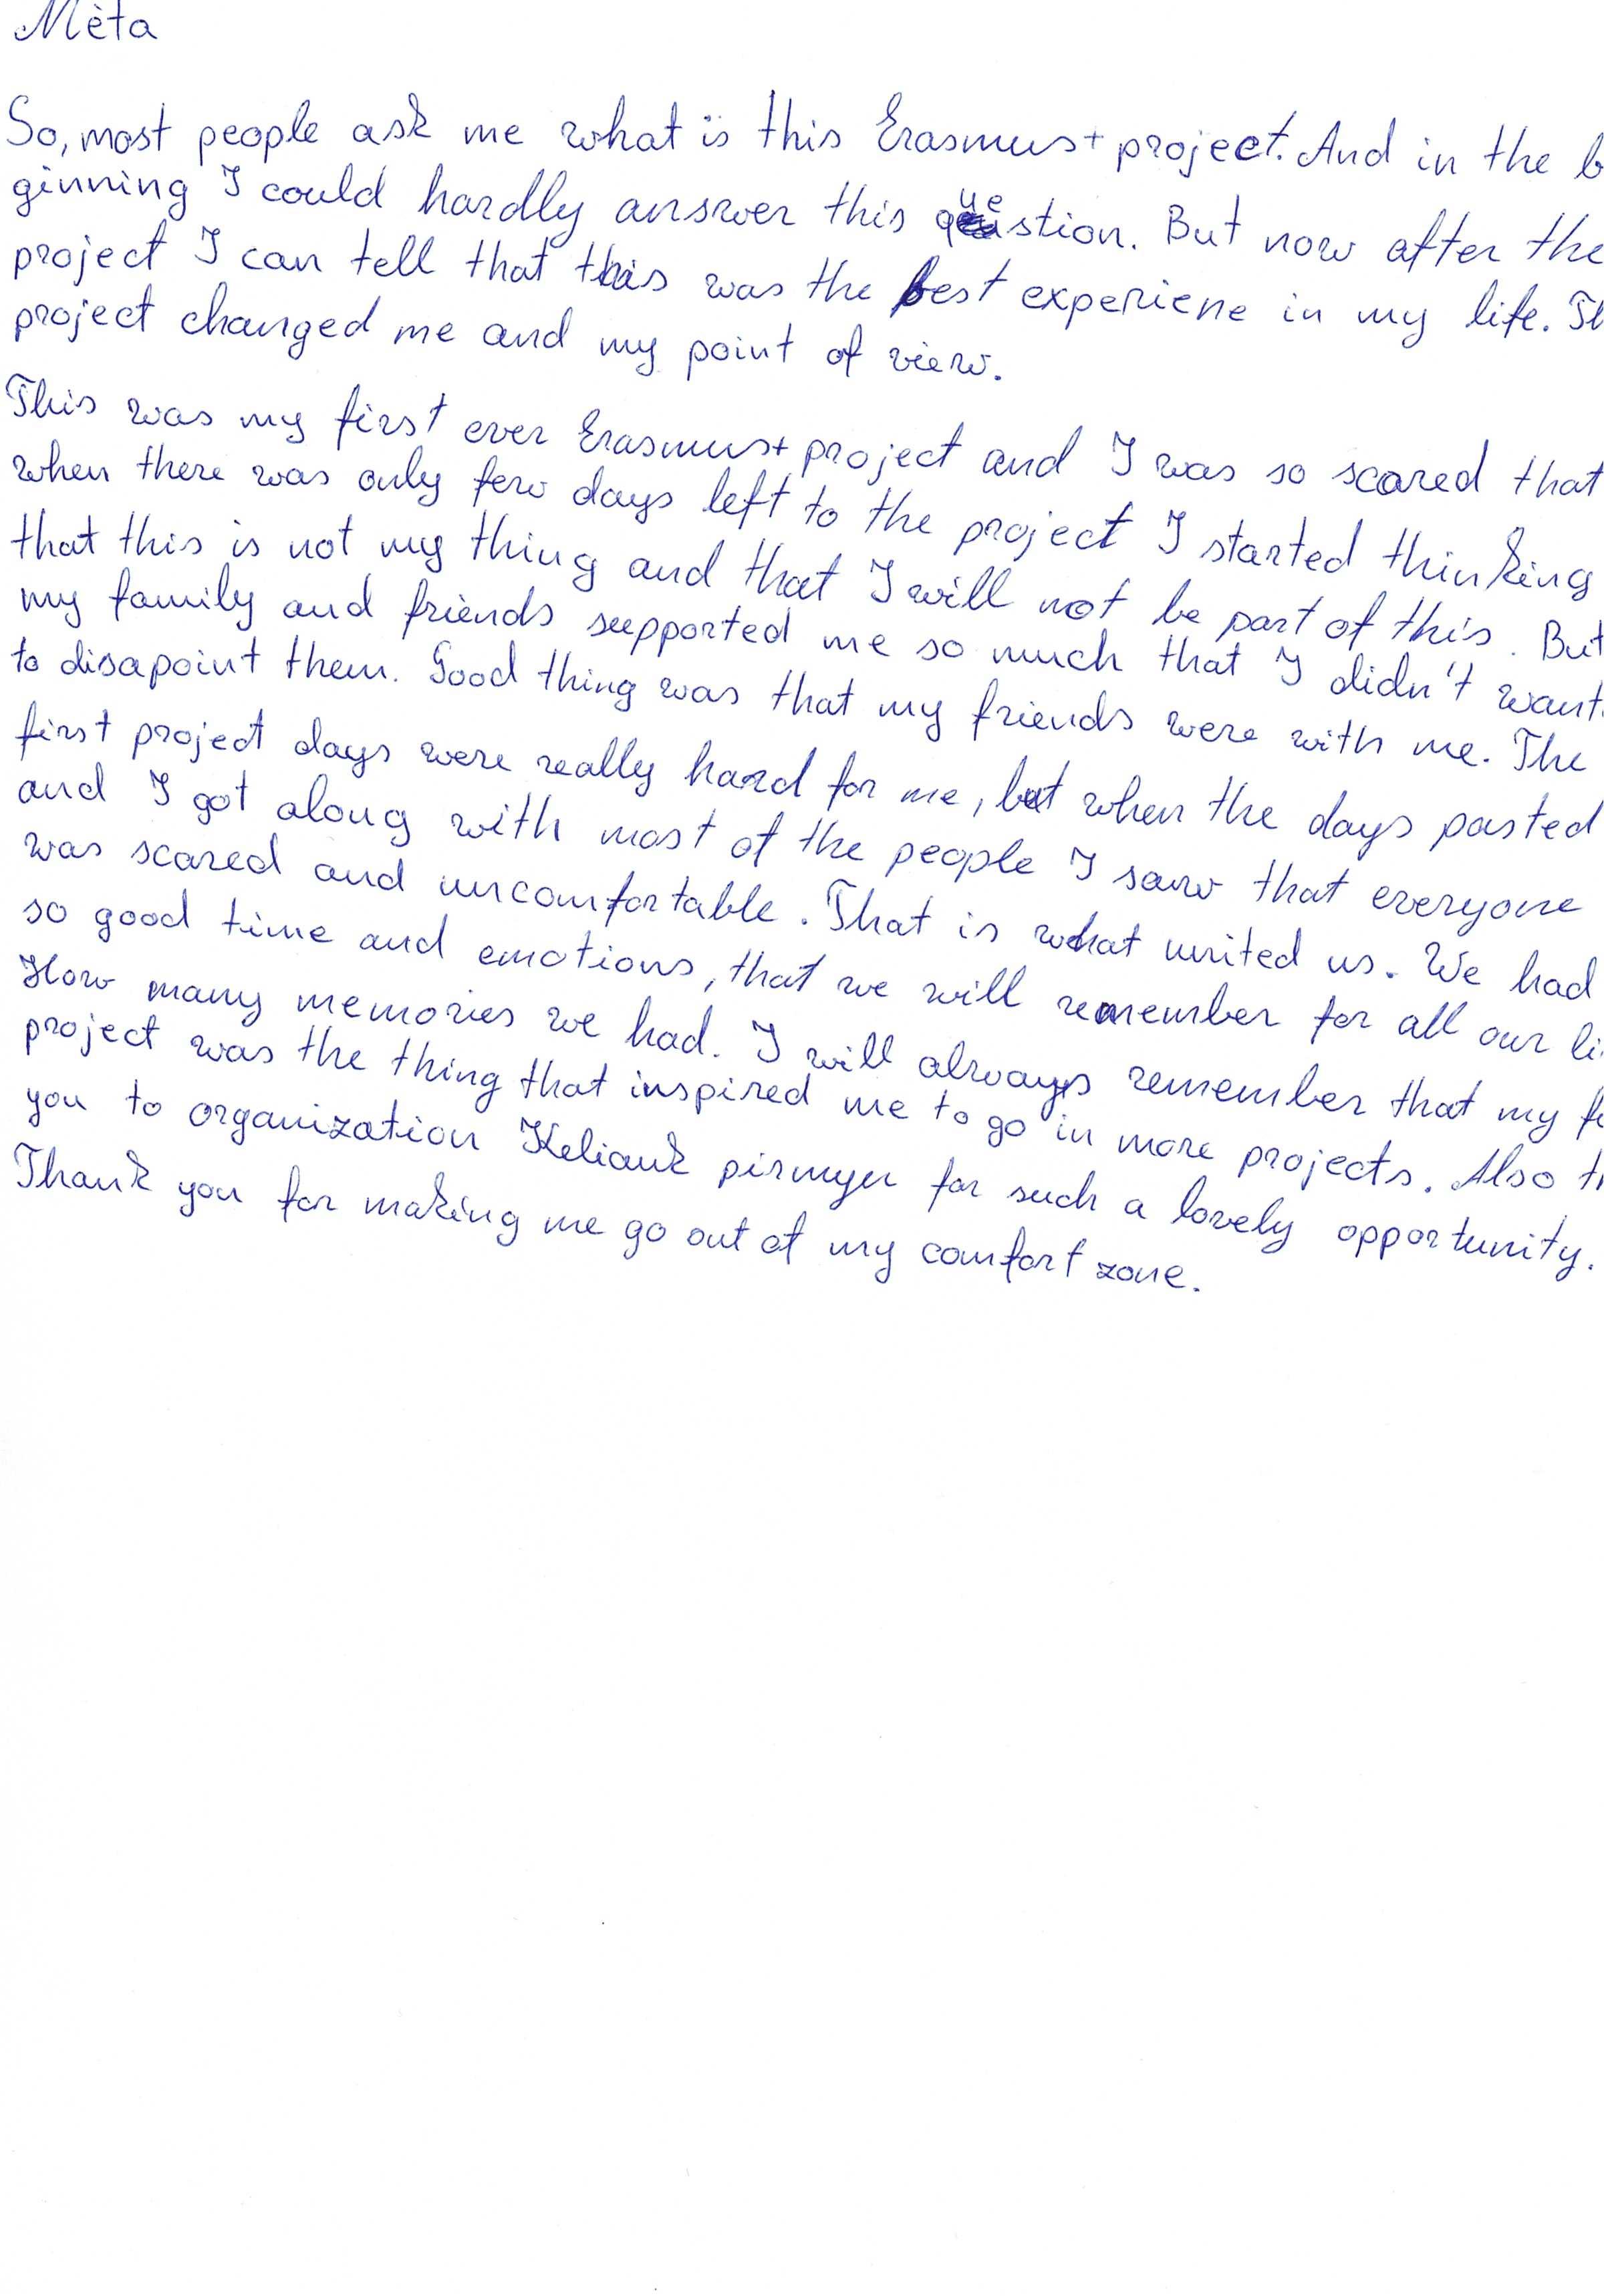 Mėta
So, most people ask me what is this Erasmus+ project. And in the b
ginning I could hardly answer this question. But now after the
project I can tell that this was the best experiene in my life. Th
project changed me and my point of view.
This was my first ever Erasmus+ project and I was so scared that
when there was only few days left to the project I started thinking
that this is not my thing and that I will not be part of this. But
my family and friends supported me so much that I didn't want
to disapoint them. Good thing was that my friends were with me. The
first project days were really hard for me, but when the days pasted
and I got along with most of the people I saw that everyone
was scared and uncomfortable. That is what united us. We had
so good time and emotions, that we will remember for all our li
How many memories we had. I will always remember that my fi
project was the thing that inspired me to go in more projects. Also th
you to organization Keliauk pirmyn for such a lovely opportunity.
Thank you for making me go out of my comfort zone.